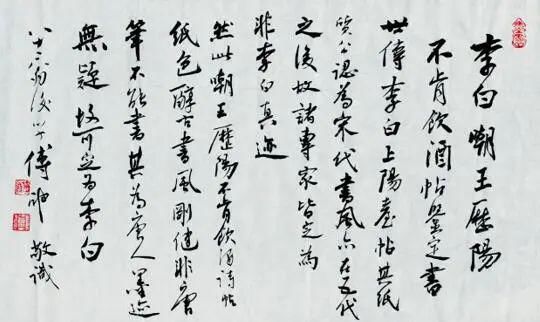 李白嘲王歷陽
不肯飲酒帖鑒定書
世傳李白上陽臺帖其紙
質公認為宋代書風亦在五代
之後故諸專家皆定為
非李白真迹
然此嘲王歷陽不肯飲酒詩帖
紙色醇古書風剛健非唐
筆不能書其為唐人墨迹
無疑 故可定為李白
八十六翁後学傅申 敬識